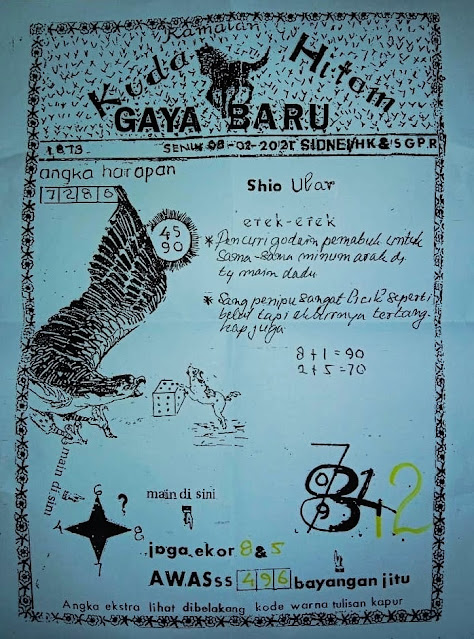 Ramalan
Kuda Hitam
GAYA BARU
1873 SENIN 08-02-2021 SIDNEI/HK & SGPR
angka harapan
7286
Shio Ular
45
90
erek-erek
* Pencuri godain pemabuk untuk
sama-sama minum arak dg
tg main dadu
* Sang penipu sangat licik seperti
belut tapi akhirnya tertang-
kap juga
8+1=90
2+5=70
main di sini
6
?
8
7
main di sini
7
8
0
9
3412
jaga ekor 8 & 5
AWASss 496 bayangan jitu
Angka ekstra lihat dibelakang kode warna tulisan kapur